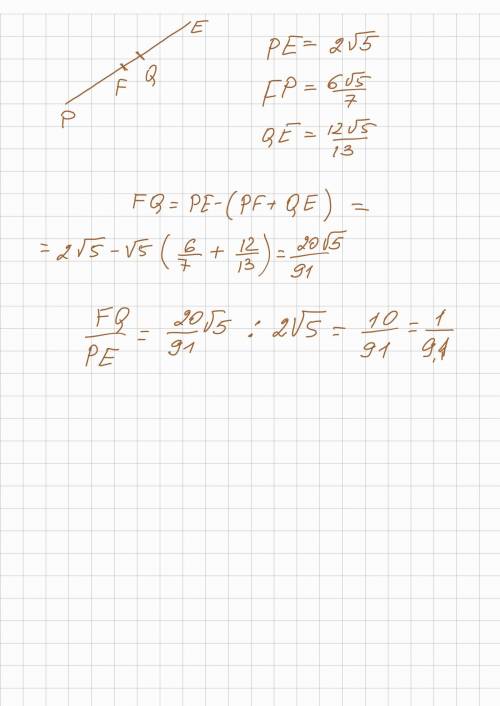 E
Q
F
P
PE = 2√5
FP = 6√5/7
QE = 12√5/13
FQ = PE - (PF + QE) =
= 2√5 - √5 (6/7 + 12/13) = 20√5/91
FQ/PE = 20/91 √5 : 2√5 = 10/91 = 1/9,1